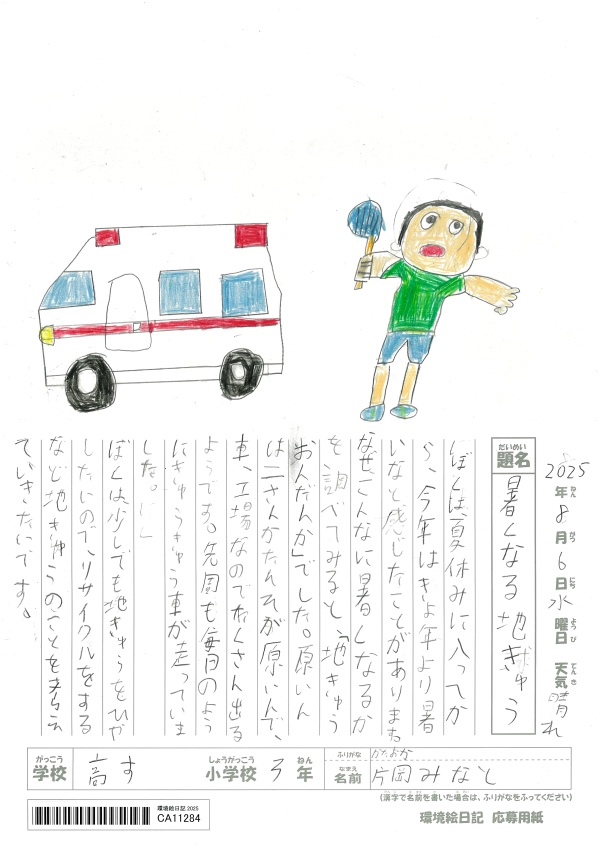 2025年8月6日水曜日 天気晴れ
題名 暑くなる地きゅう
ぼくは、夏休みに入ってか
ら、今年はきょ年より暑
いなと感じたことがあります。
なぜこんなに暑くなるか
を調べてみると、「地きゅう
おんだんか」でした。原いん
は二さんかたんそが原いんで、
車、工場なのでたくさん出る
ようです。先周も毎日のよう
にきゅうきゅう車が走っていま
した。
ぼくは少しでも地きゅうをひや
したいので、リサイクルをする
など地きゅうのことを考え
ていきたいです。
学校 高す 小学校 3年 名前 片岡みなと
がっこう しょうがっこう ねん なまえ ふりがな かたおか
(漢字で名前を書いた場合は、ふりがなをふってください)
環境絵日記 2025
CA11284
環境絵日記 応募用紙